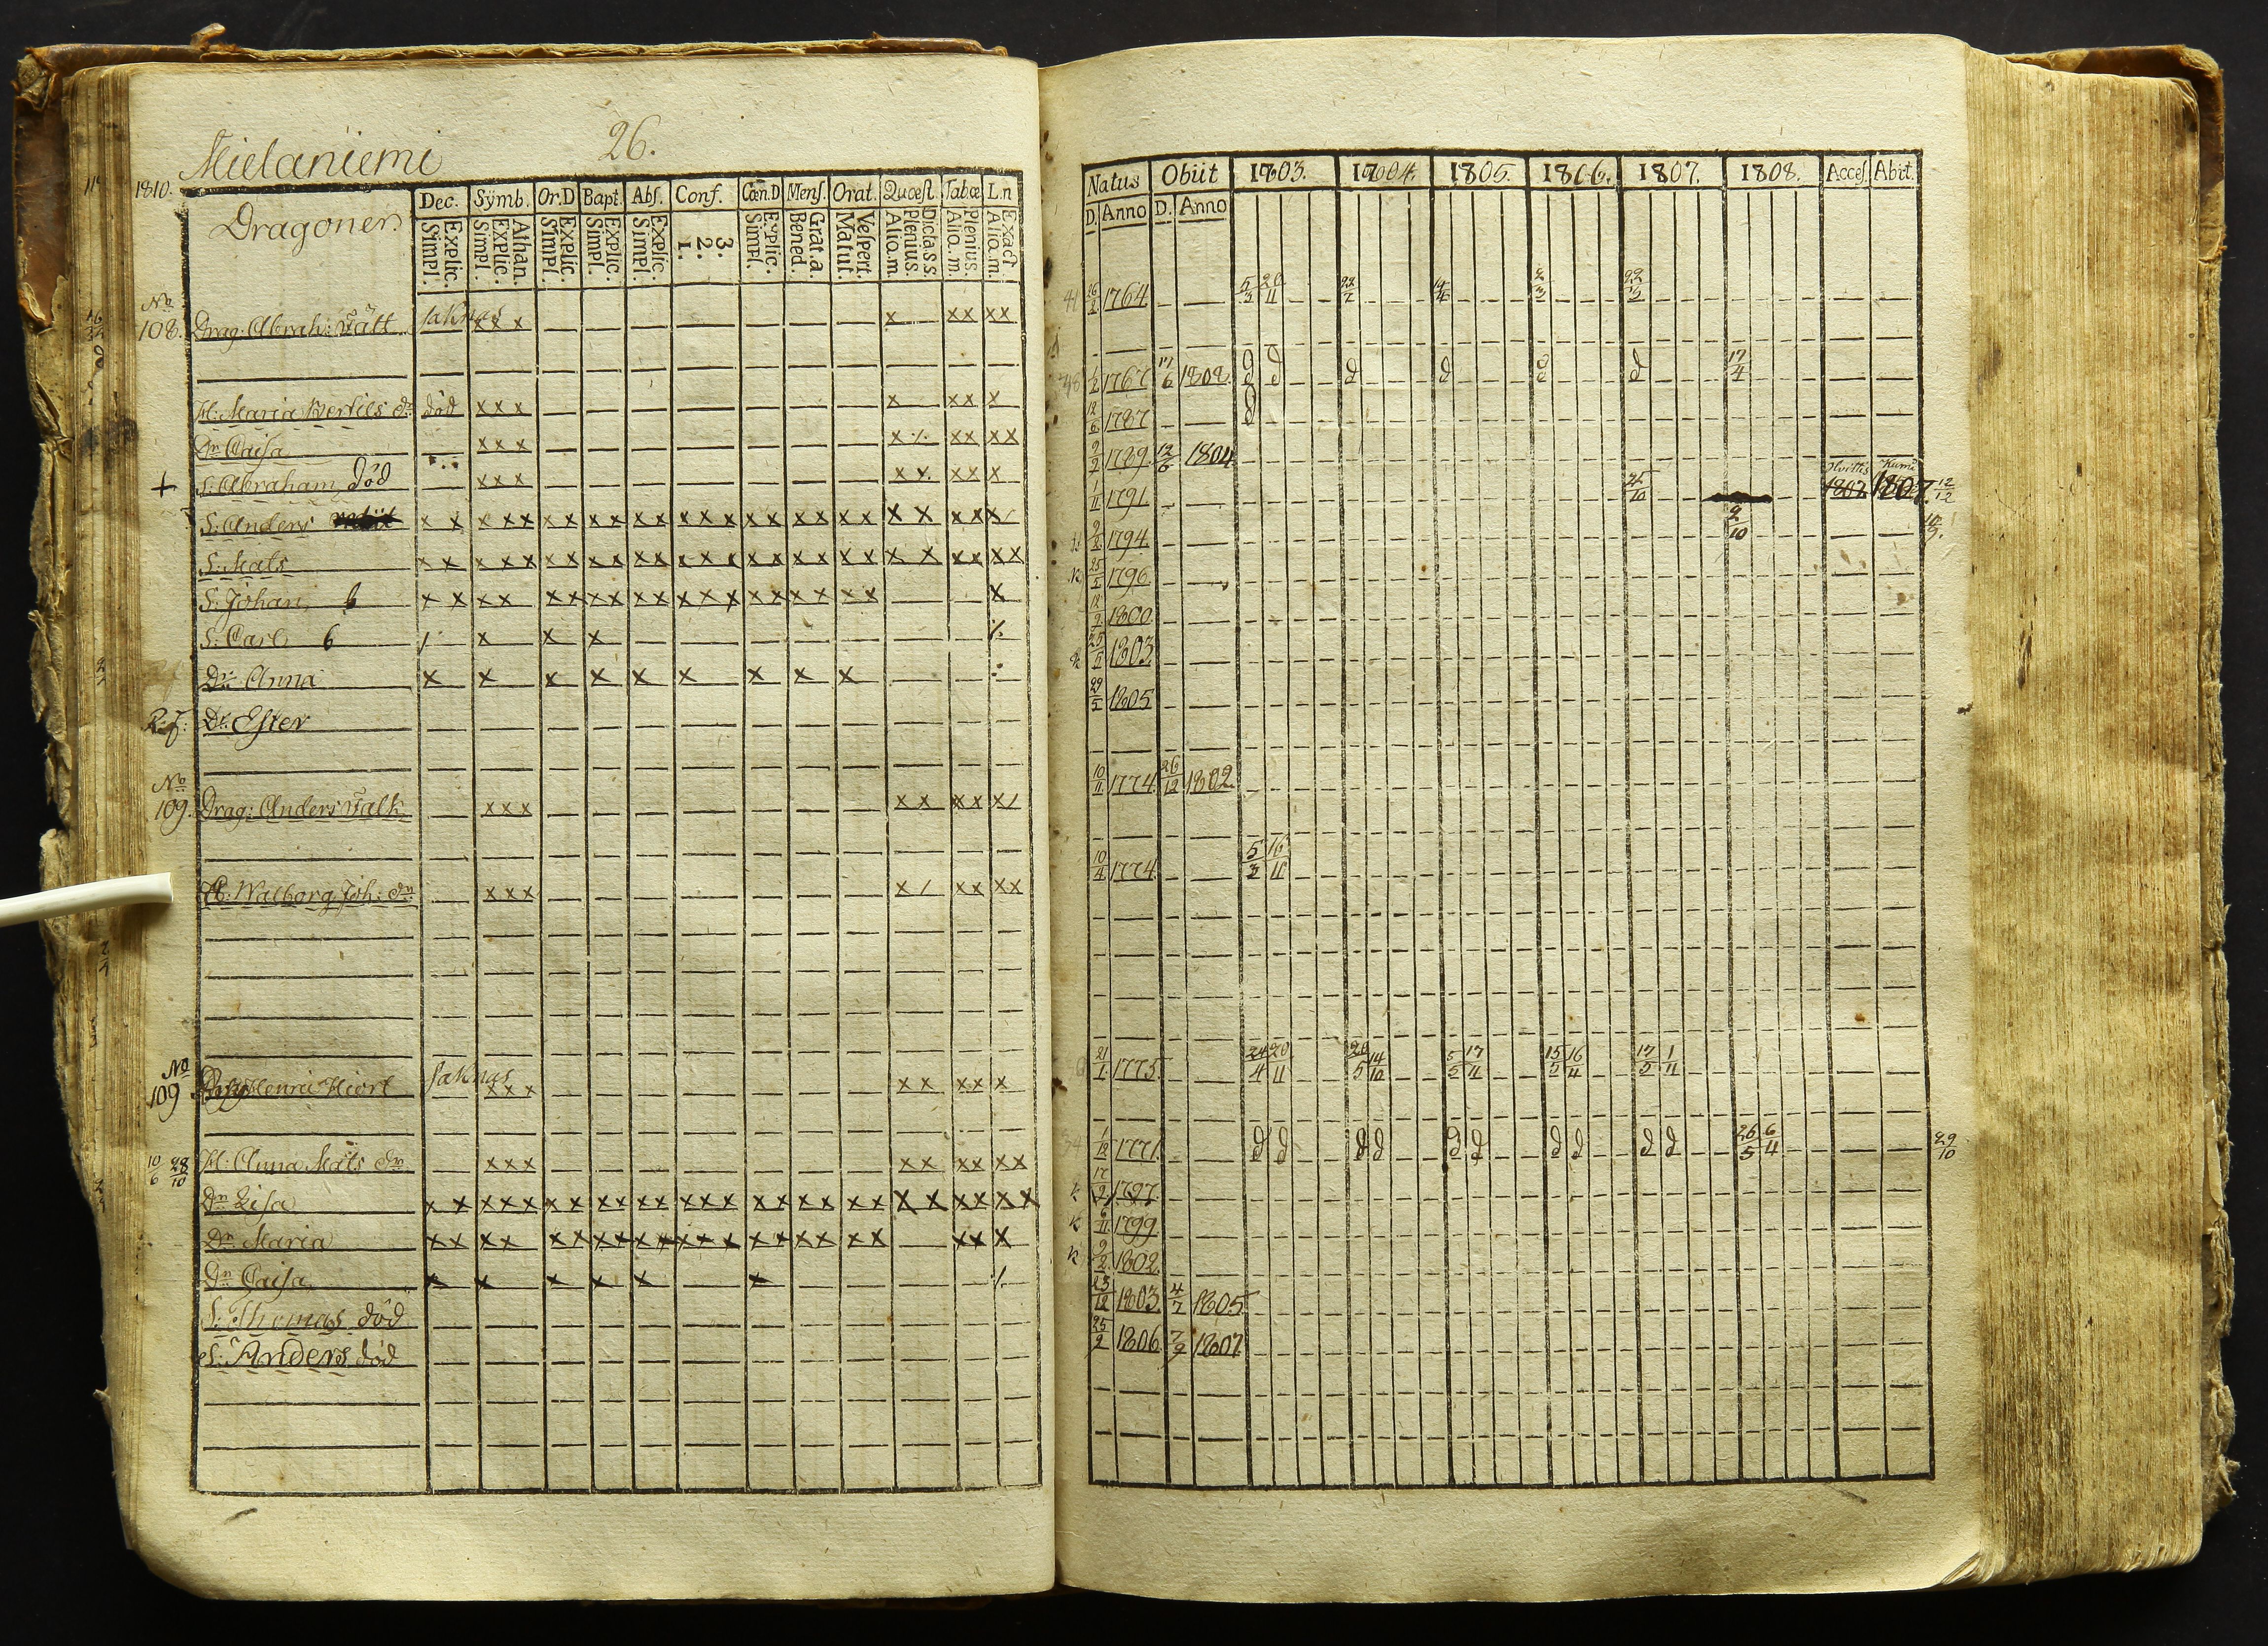 Mielaniemi 26.
1810.
Dragoner
Dec. Symb. Or.D Bapt. Abs. Conf. Cœn.D Mens. Orat. Quæst. Tabœ L.n
Explic. Simpl. Athan. Explic. Simpl. Explic. Simpl. Explic. Simpl. Explic. Simpl. 3. 2. 1. Explic. Simpl. Grat.a. Bened. Velpert. Matut. Dicta.s.s. Plenius. Alio.m. Plenius. Alio.m. Exact Alio.m.
No 108. Drag: Abrah: Vält saknas xxx x xx xx
H: Maria Bertils dr död xxx x xx x
Dr Caisa xxx x ·/. xx xx
+ S: Abraham död xxx x x. xx x
S: Anders x x x xx xx xx xx xxx xx xx xx x x xx x/
S: Mats x x x xx xx xx xx xxx xx xx xx x x xx xx
S: Johan 6 x x xx xx xx xx xxx xx xx xx x
S: Carl 6 /· x x x ·/.
Dr: Anna x x x x x x x x x :
R.f. Dr. Ester
No 109. Drag: Anders Falk xxx x x xx x/
H: Walborg Joh: dr xxx x / xx xx
No 109 Drag Henric Hiort saknas xxx x x xx x
10/6 28/10 H: Anna Mats dr xxx xx xx xx
Dr Lisa x x xxx xx xx xx xxx xx xx xx x x xx xx
Dr Maria xx xx xx xx xx xxx xx xx xx xx x
Dr Caisa x x x x x x ·/.
S: Thomas död
S: Anders död
Natus Obiit 1803. 1804. 1805. 1806. 1807. 1808. Acces. Abit.
D. Anno D. Anno
1764 5/3 4/4
1/2 1767 17/6 1808 d d d d d 17/4
12/6 1787 d
1789 12/6 1804
1/11 1791 25/10 1807 12/12
1794 9/10
25/5 1796
1800
25/5 1803
29/5 1805
10/11 1774 26/12 1802
10/4 1774 5/3 16/11
21/1 1775 24/4 20/11 14/10 5/5 17/11 15/5 16/11 17/5 1/11
1/12 1771 d d d d d d d d d d 26/5 6/4 29/10
17/9 1797
6/11 1799
9/2 1802
23/12 1803 4/7 1805
25/2 1806 7/9 1807